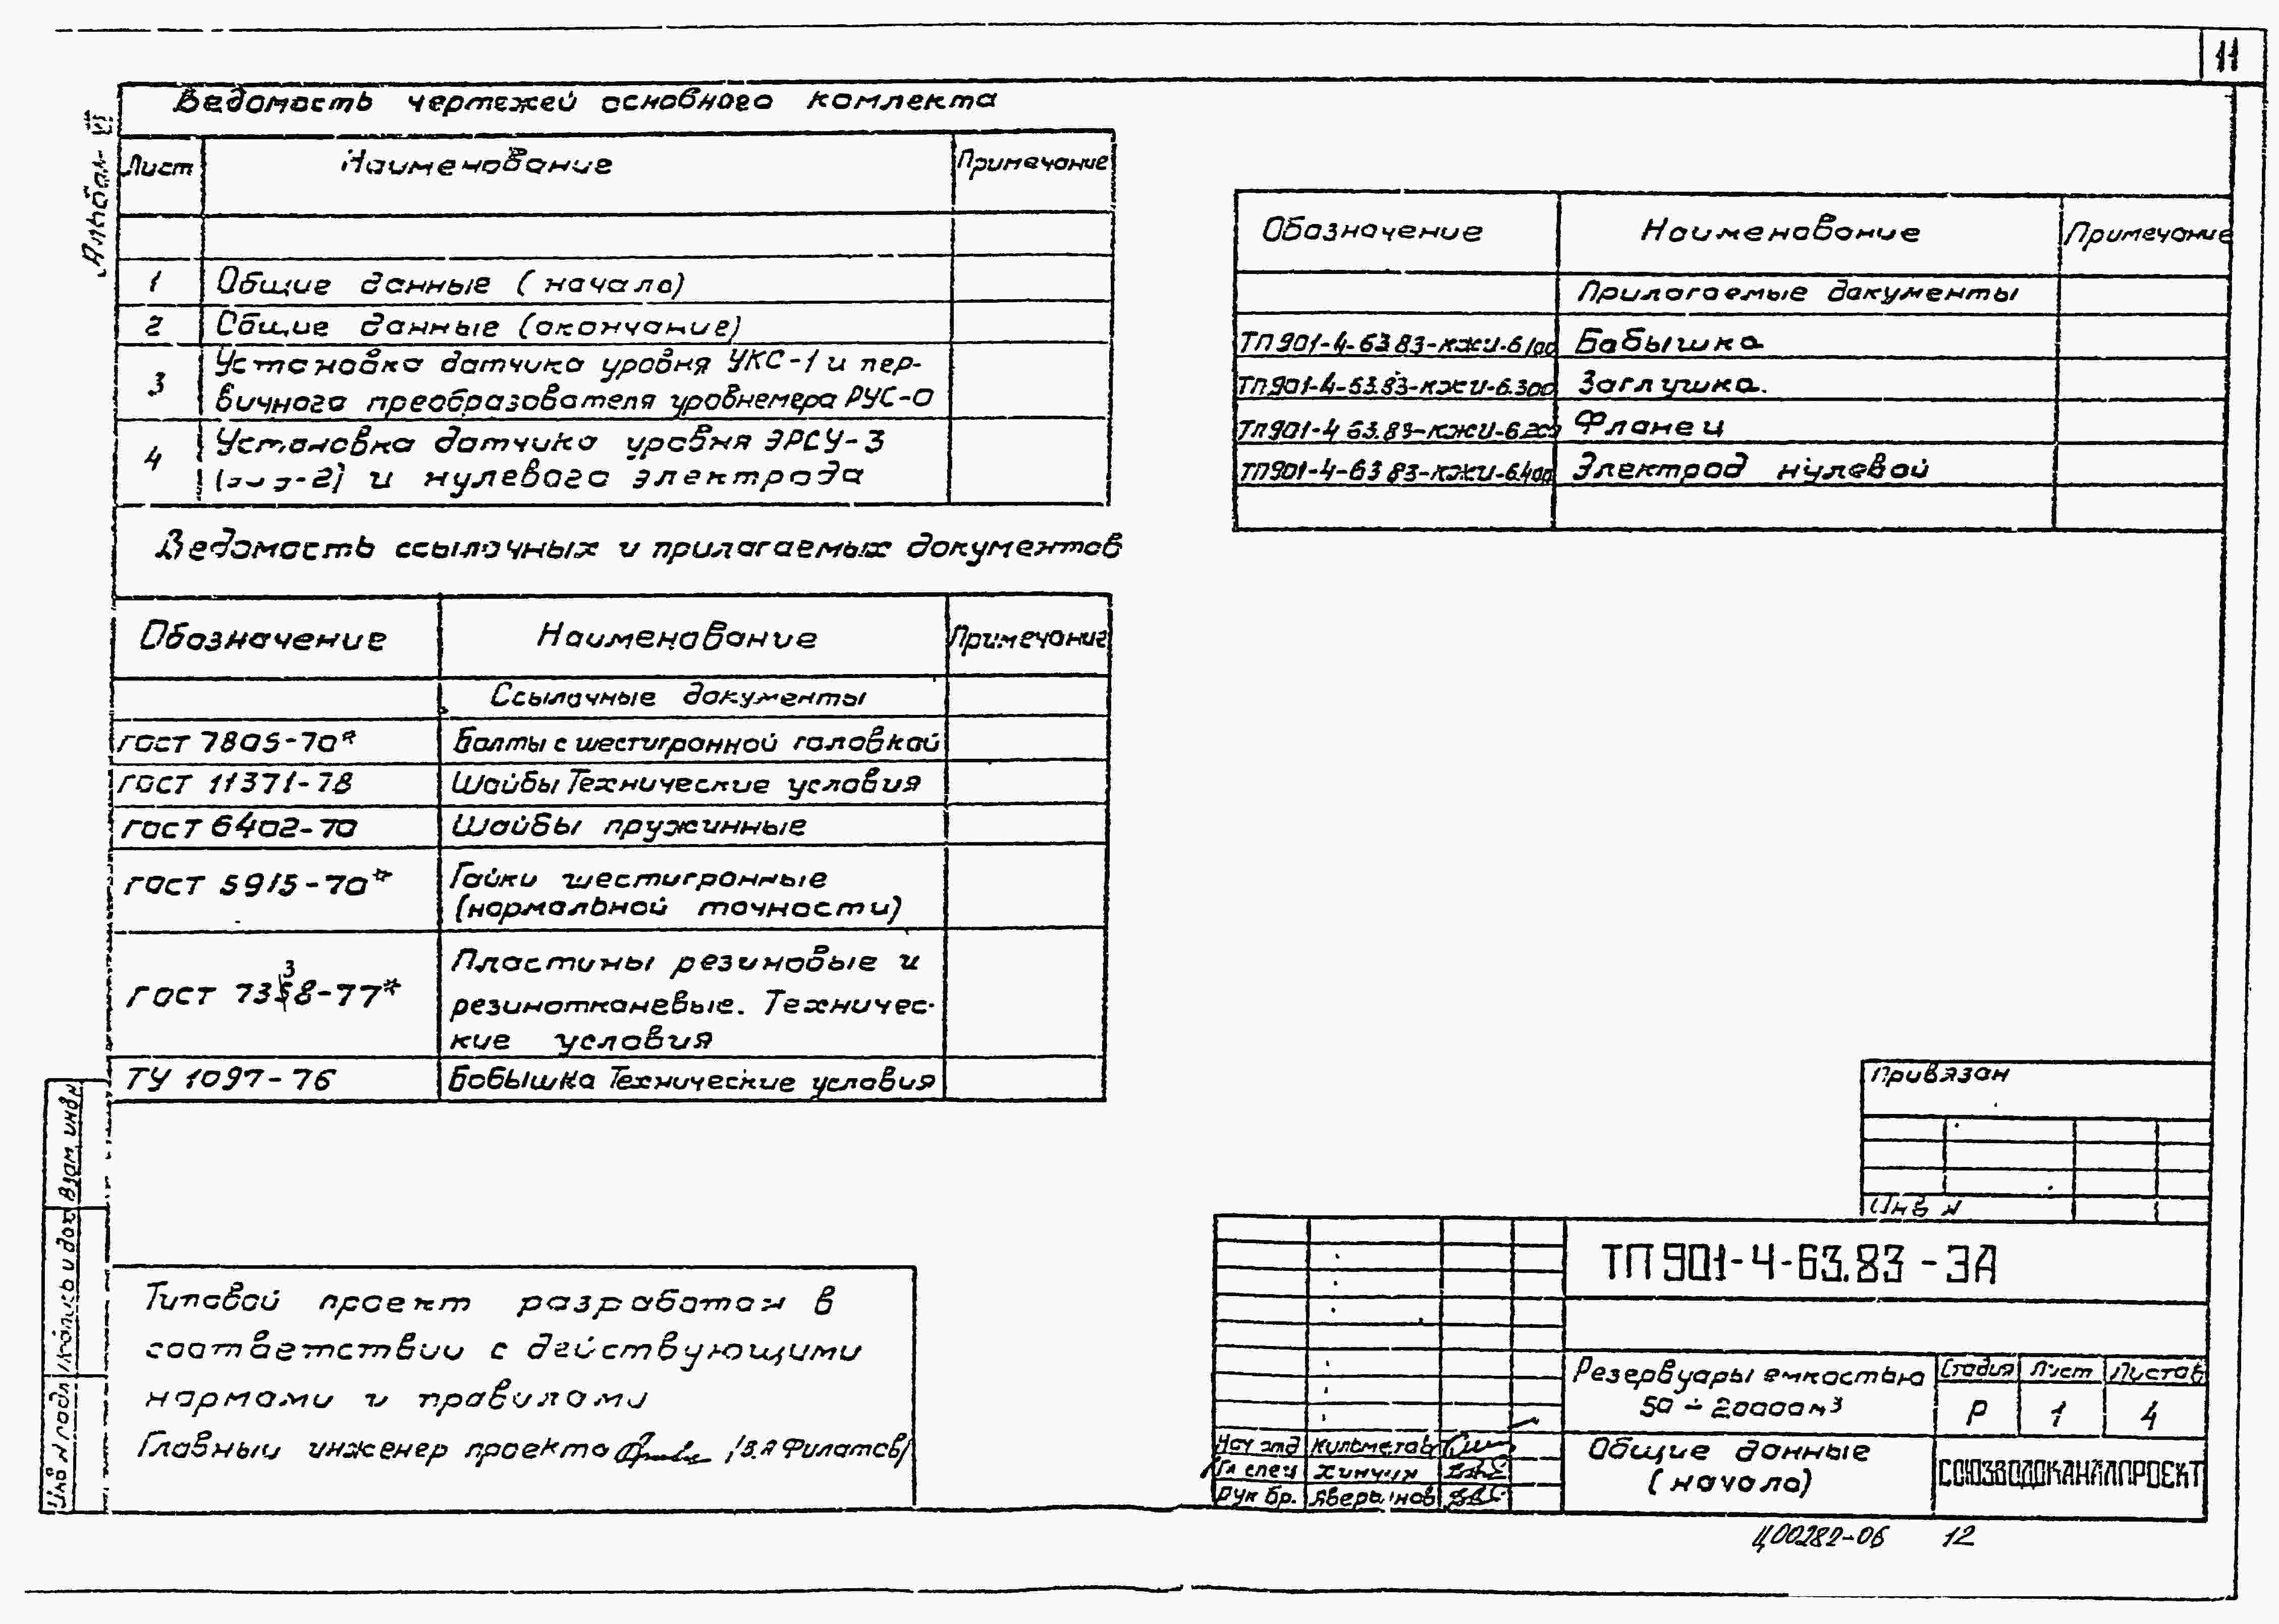 11
Альбом VI
Ведомость чертежей основного комлекта
Лист Наименование Примечание
1 Общие данные (начало)
2 Общие данные (окончание)
3 Установка датчика уровня УКС-1 и пер-
вичного преобразователя уровнемера РУС-О
4 Установка датчика уровня ЭРСУ-3
и нулевого электрода
Ведомость ссылочных и прилагаемых документов
Обозначение Наименование Примечание
Ссылочные документы
ГОСТ 7805-70* Болты с шестигранной головкой
ГОСТ 11371-78 Шайбы Технические условия
ГОСТ 6402-70 Шайбы пружинные
ГОСТ 5915-70* Гайки шестигранные
(нормальной точности)
ГОСТ 7338-77* Пластины резиновые и
резинотканевые. Техничес-
кие условия
ТУ 1097-76 Бобышка Технические условия
Обозначение Наименование Примечание
Прилагаемые документы
ТП901-4-63.83-КЖИ-6.100 Бабышка
ТП901-4-63.83-КЖИ-6.300 Заглушка.
ТП901-4 63.83-КЖИ-6.200 Фланец
ТП901-4-63 83-КЖИ-6.400 Электрод нулевой
Типовой проект разработан в
соответствии с действующими
нормами и правилами
Главный инженер проекта /В.А Филатов/
Взам инв N
Подпись и дата
Инв N подл
Привязан
Инв N
ТП 901-4-63.83-ЭА
Резервуары емкостью
50÷20000м³
Стадия Лист Листов
Р 1 4
Общие данные
(начало)
СОЮЗВОДОКАНАЛПРОЕКТ
Нач отд Кульметов
Гл спец Хинчин
Рук бр.
Ц00282-06 12